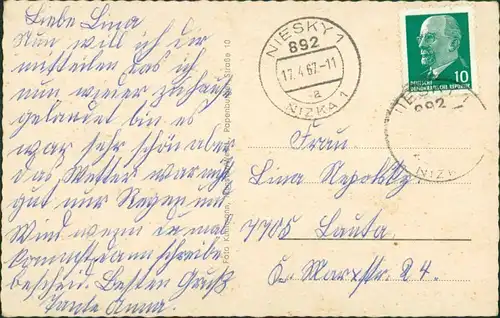 Liebe Lina
Nun will ich dir
mitteilen das ich
nun wieder zuhause
gelandet bin es
war sehr schön aber
das Wetter war nicht
gut nur Regen und
Wind wenn du mal
kommst dann schreibe
bescheid. Besten Gruß
Tante Anna.
Papenbu Straße 10
Foto K
NIESKY 1
892
17.4.67.-11
a
NIZKA 1
DEUTSCHE
DEMOKRATISCHE REPUBLIK
10
NIESKY 1
892
NIZK
Frau
Lina
7705 Lauta
K. Marxstr. 24.